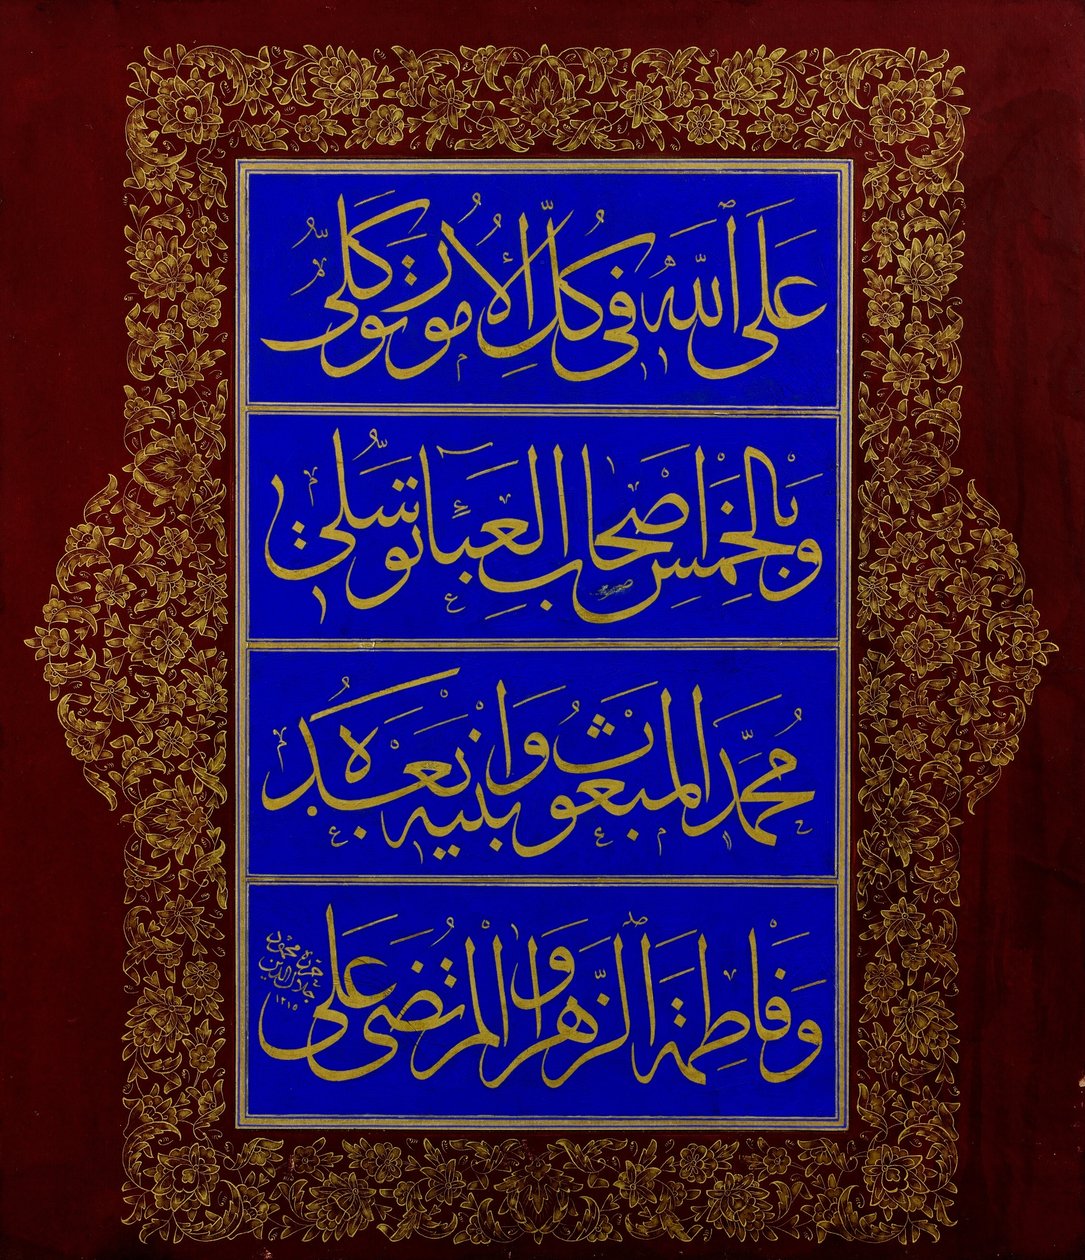 عَلَى ٱللَّهِ فِي كُلِّ الْأُمُورِ تَوَكُّلِي
وَبِالْخَمْسِ أَصْحَابِ الْعَبَاءِ تَوَسُّلِي
مُحَمَّدِ الْمَبْعُوثِ وَابْنَيْهِ بَعْدَهُ
وَفَاطِمَةَ ٱلزَّهْرَا وَالْمُرْتَضَى عَلِي
محمود
جلال الدين
١٢١٥